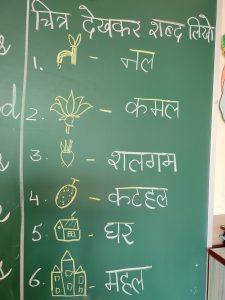 चित्र देखकर शब्द लिखो
1. - नल
2. - कमल
3. - शलगम
4. - कटहल
5. - घर
6. - महल